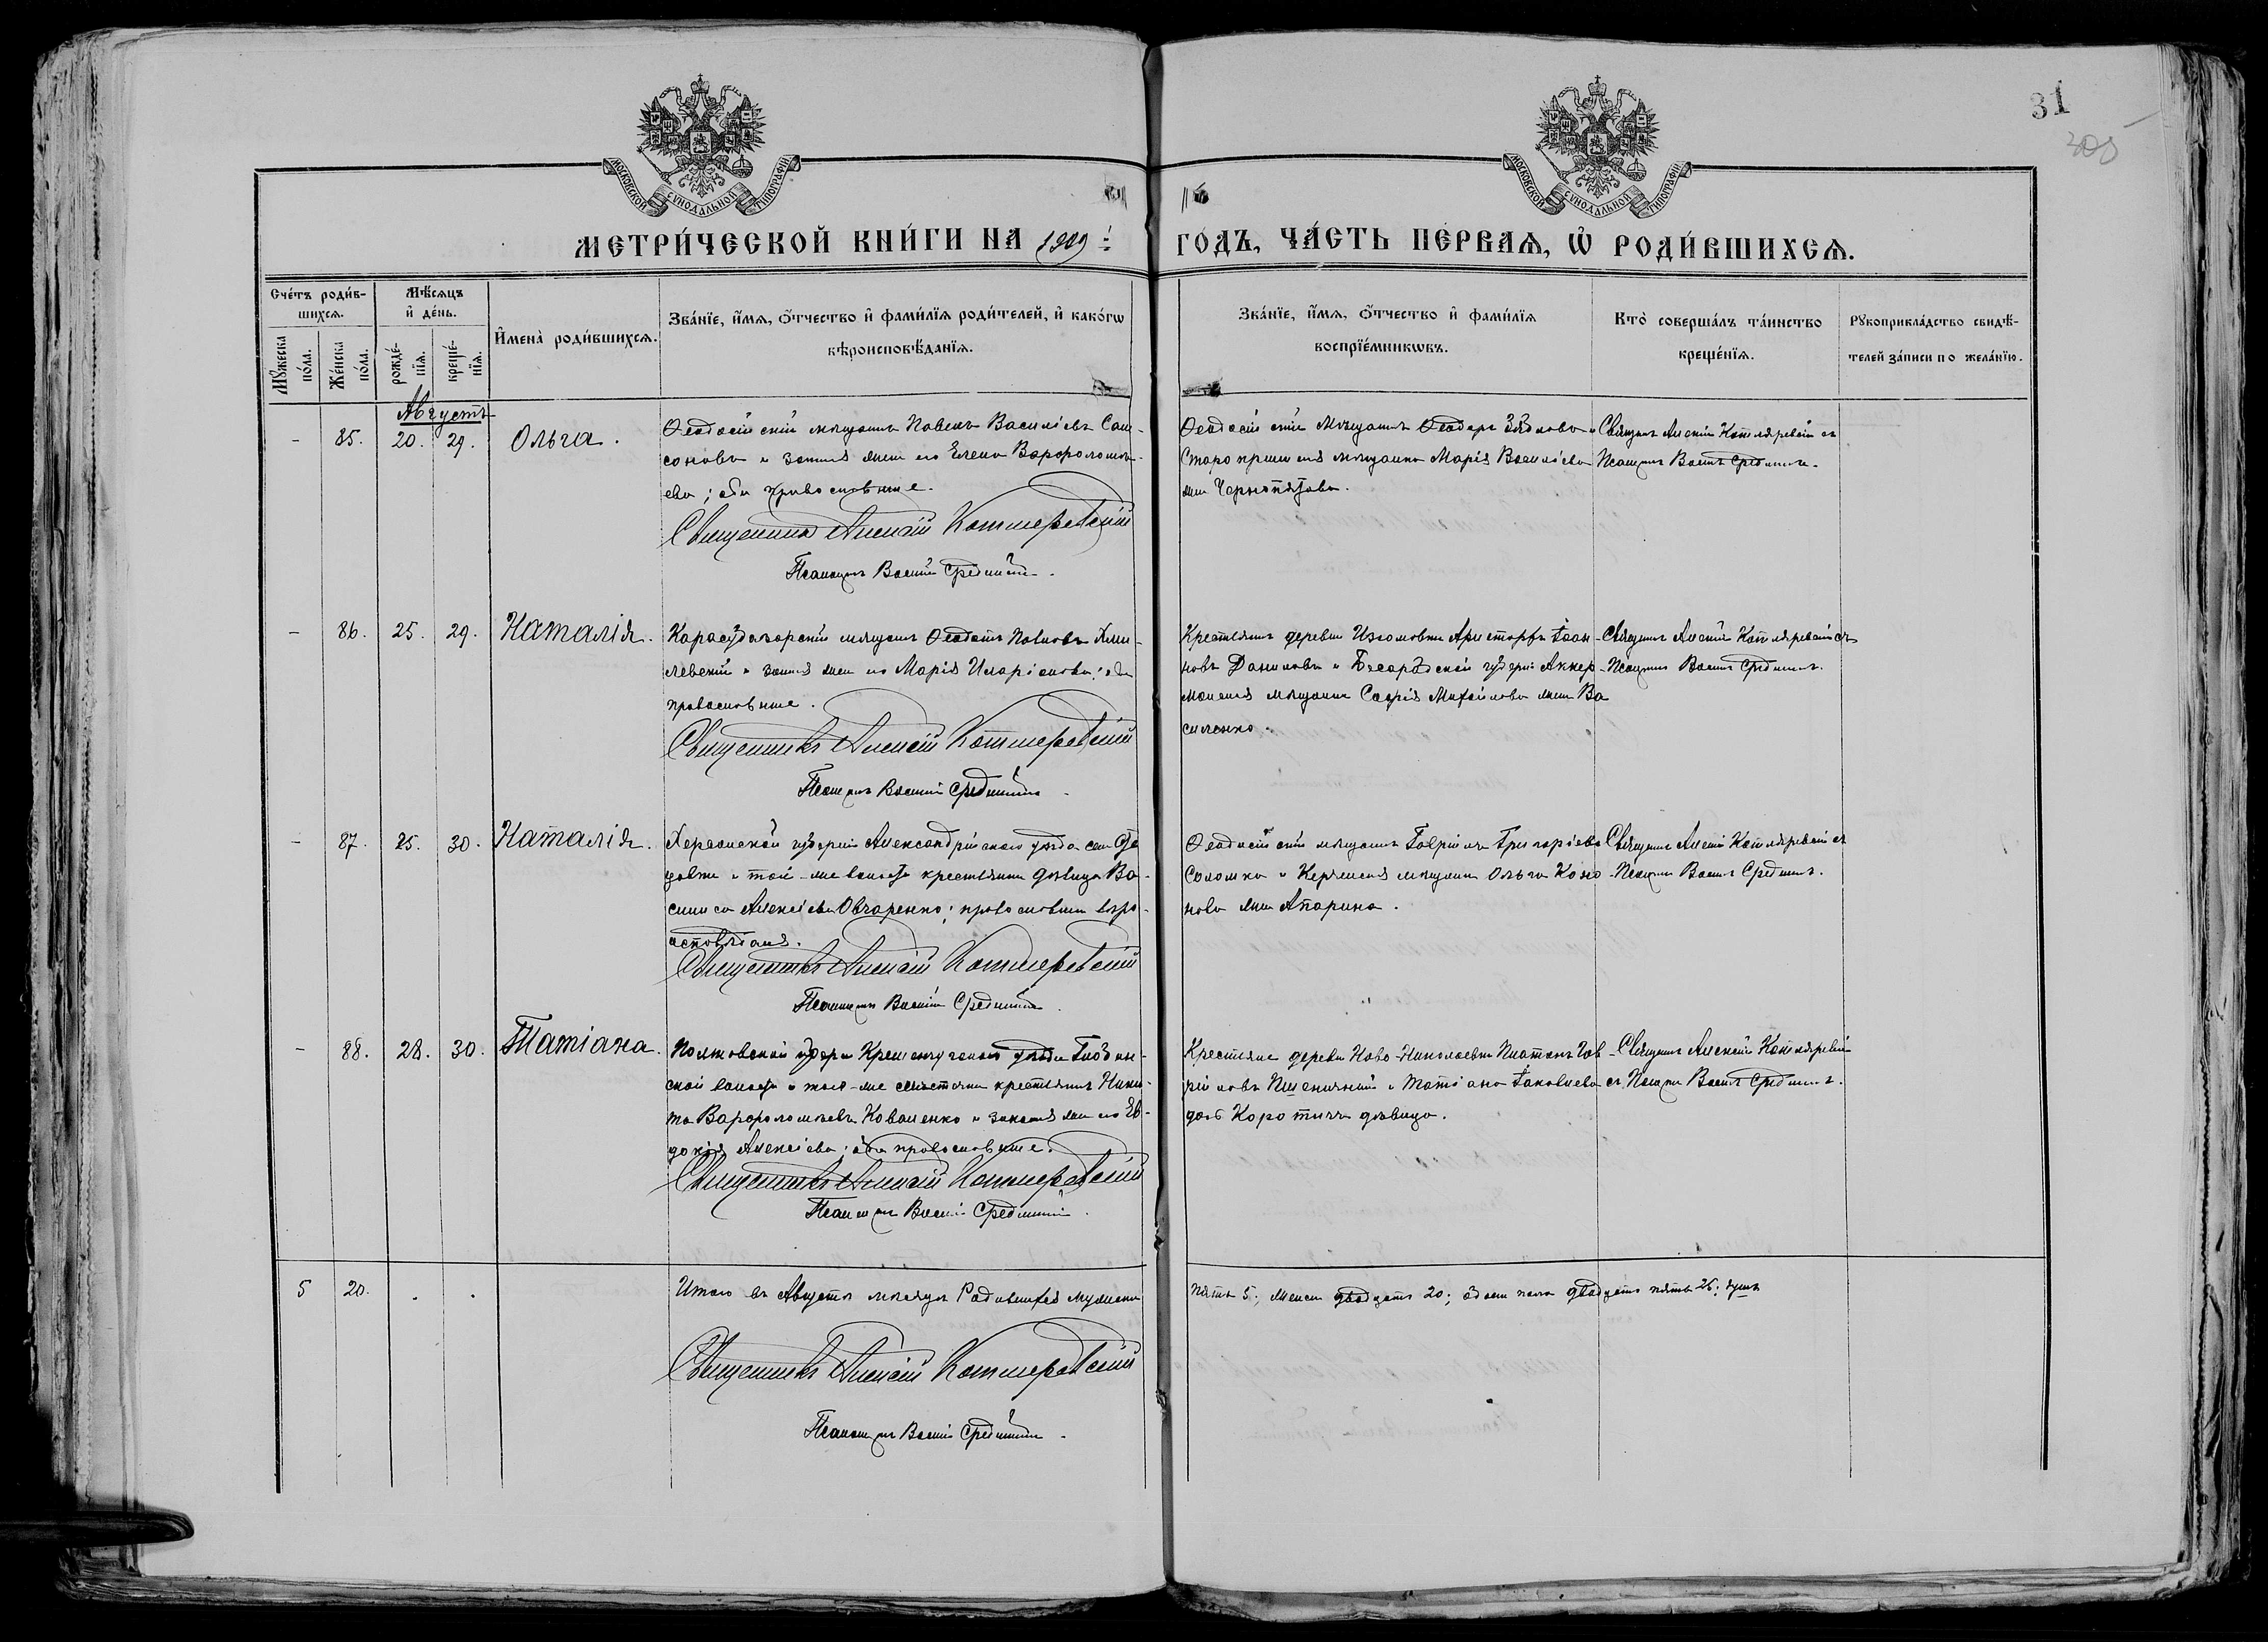 31
305
МОСКОВСКОЙ СУНОДАЛЬНОЙ ТИПОГРАФІИ
МОСКОВСКОЙ СУНОДАЛЬНОЙ ТИПОГРАФІИ
МЕТРИ́ЧЕСКОЙ КНИ́ГИ НА 1909
ГО́ДЪ, ЧА́СТЬ ПЕ́РВАѦ, Ѡ҆ РОДИ́ВШИХСѦ.
Сче́тъ роди́в-
шихсѧ.
Мѣ́сѧцъ
и҆ де́нь.
Мꙋ́жеска по́ла.
Же́нска по́ла.
рожде́-нїѧ.
креще́-нїѧ.
И҆мена̀ роди́вшихсѧ.
Зва́нїе, и҆́мѧ, ѻ҆́тчество и҆ фами́лїѧ роди́телей, и҆ како́гѡ
вѣроисповѣ́данїѧ.
Зва́нїе, и҆́мѧ, ѻ҆́тчество и҆ фами́лїѧ
воспрїе́мникѡвъ.
Кто̀ соверша́лъ та́инство
креще́нїѧ.
Рꙋкоприкла́дство свидѣ́-
телей за́писи по жела́нїю.
Августъ
- 85. 20. 29. Ольга.
Ѳеодосійскій мѣщанинъ Павелъ Василіевъ Сам-
соновъ и законная жена его Елена Варфоломѣ-
ева; оба православные.
Священникъ Алексій Котляревскій
Псаломщикъ Василій Срединскій.
Ѳеодосійскій мѣщанинъ Ѳеодоръ и
Старо мѣщанка Марія Василіева
жена Чернопятова.
Священникъ Алексій Котляревскій съ
Псаломщикомъ Василіемъ Срединскимъ.
- 86. 25. 29. Наталія.
Карасубазарскій мѣщанинъ Ѳеодотъ Павловъ Хми-
левскій и законная жена его Марія Иларіонова; оба
православные.
Священникъ Алексій Котляревскій
Псаломщикъ Василій Срединскій
Крестьянинъ деревни Аристархъ Іоан-
новъ Даниловъ и Бессарабской губерніи Аккер-
манская мѣщанка Софія Михайлова жена Ва
силенко.
Священникъ Алексій Котляревскій съ
Псаломщикомъ Василіемъ Срединскимъ.
- 87. 25. 30. Наталія.
Херсонской губерніи Александрійскаго уѣзда села Ѳе
и той-же волости крестьянка дѣвица Ва-
силиса Алексіева Овчаренко; православнаго вѣро-
исповѣданія.
Священникъ Алексій Котляревскій
Псаломщикъ Василій Срединскій
Ѳеодосійскій мѣщанинъ Гавріилъ Григоріевъ
Соломка и Керченская мѣщанка Ольга Коно
нова жена Апарина.
Священникъ Алексій Котляревскій съ
Псаломщикомъ Василіемъ Срединскимъ.
- 88. 28. 30. Татіана.
Полтавской губерніи Кременчугскаго уѣзда Глобин-
ской волости и того-же мѣстечка крестьянинъ Ники-
та Варфоломѣевъ Коваленко и законная жена его Ев-
докія Алексіева; оба православные.
Священникъ Алексій Котляревскій
Псаломщикъ Василій Срединскій.
Крестьяне деревни Ново-Николаевки Платонъ Гав-
ріиловъ Пшеничный и Татіана Іаковлева
дочь Коротичъ дѣвица.
Священникъ Алексій Котляревскій
съ Псаломщикомъ Василіемъ Срединскимъ.
5 20. . .
Итого въ Августѣ мѣсяцѣ Родившихся мужеска
пять 5; женска двадцать 20; обоего пола двадцать пять 25; душъ
Священникъ Алексій Котляревскій
Псаломщикъ Василій Срединскій.